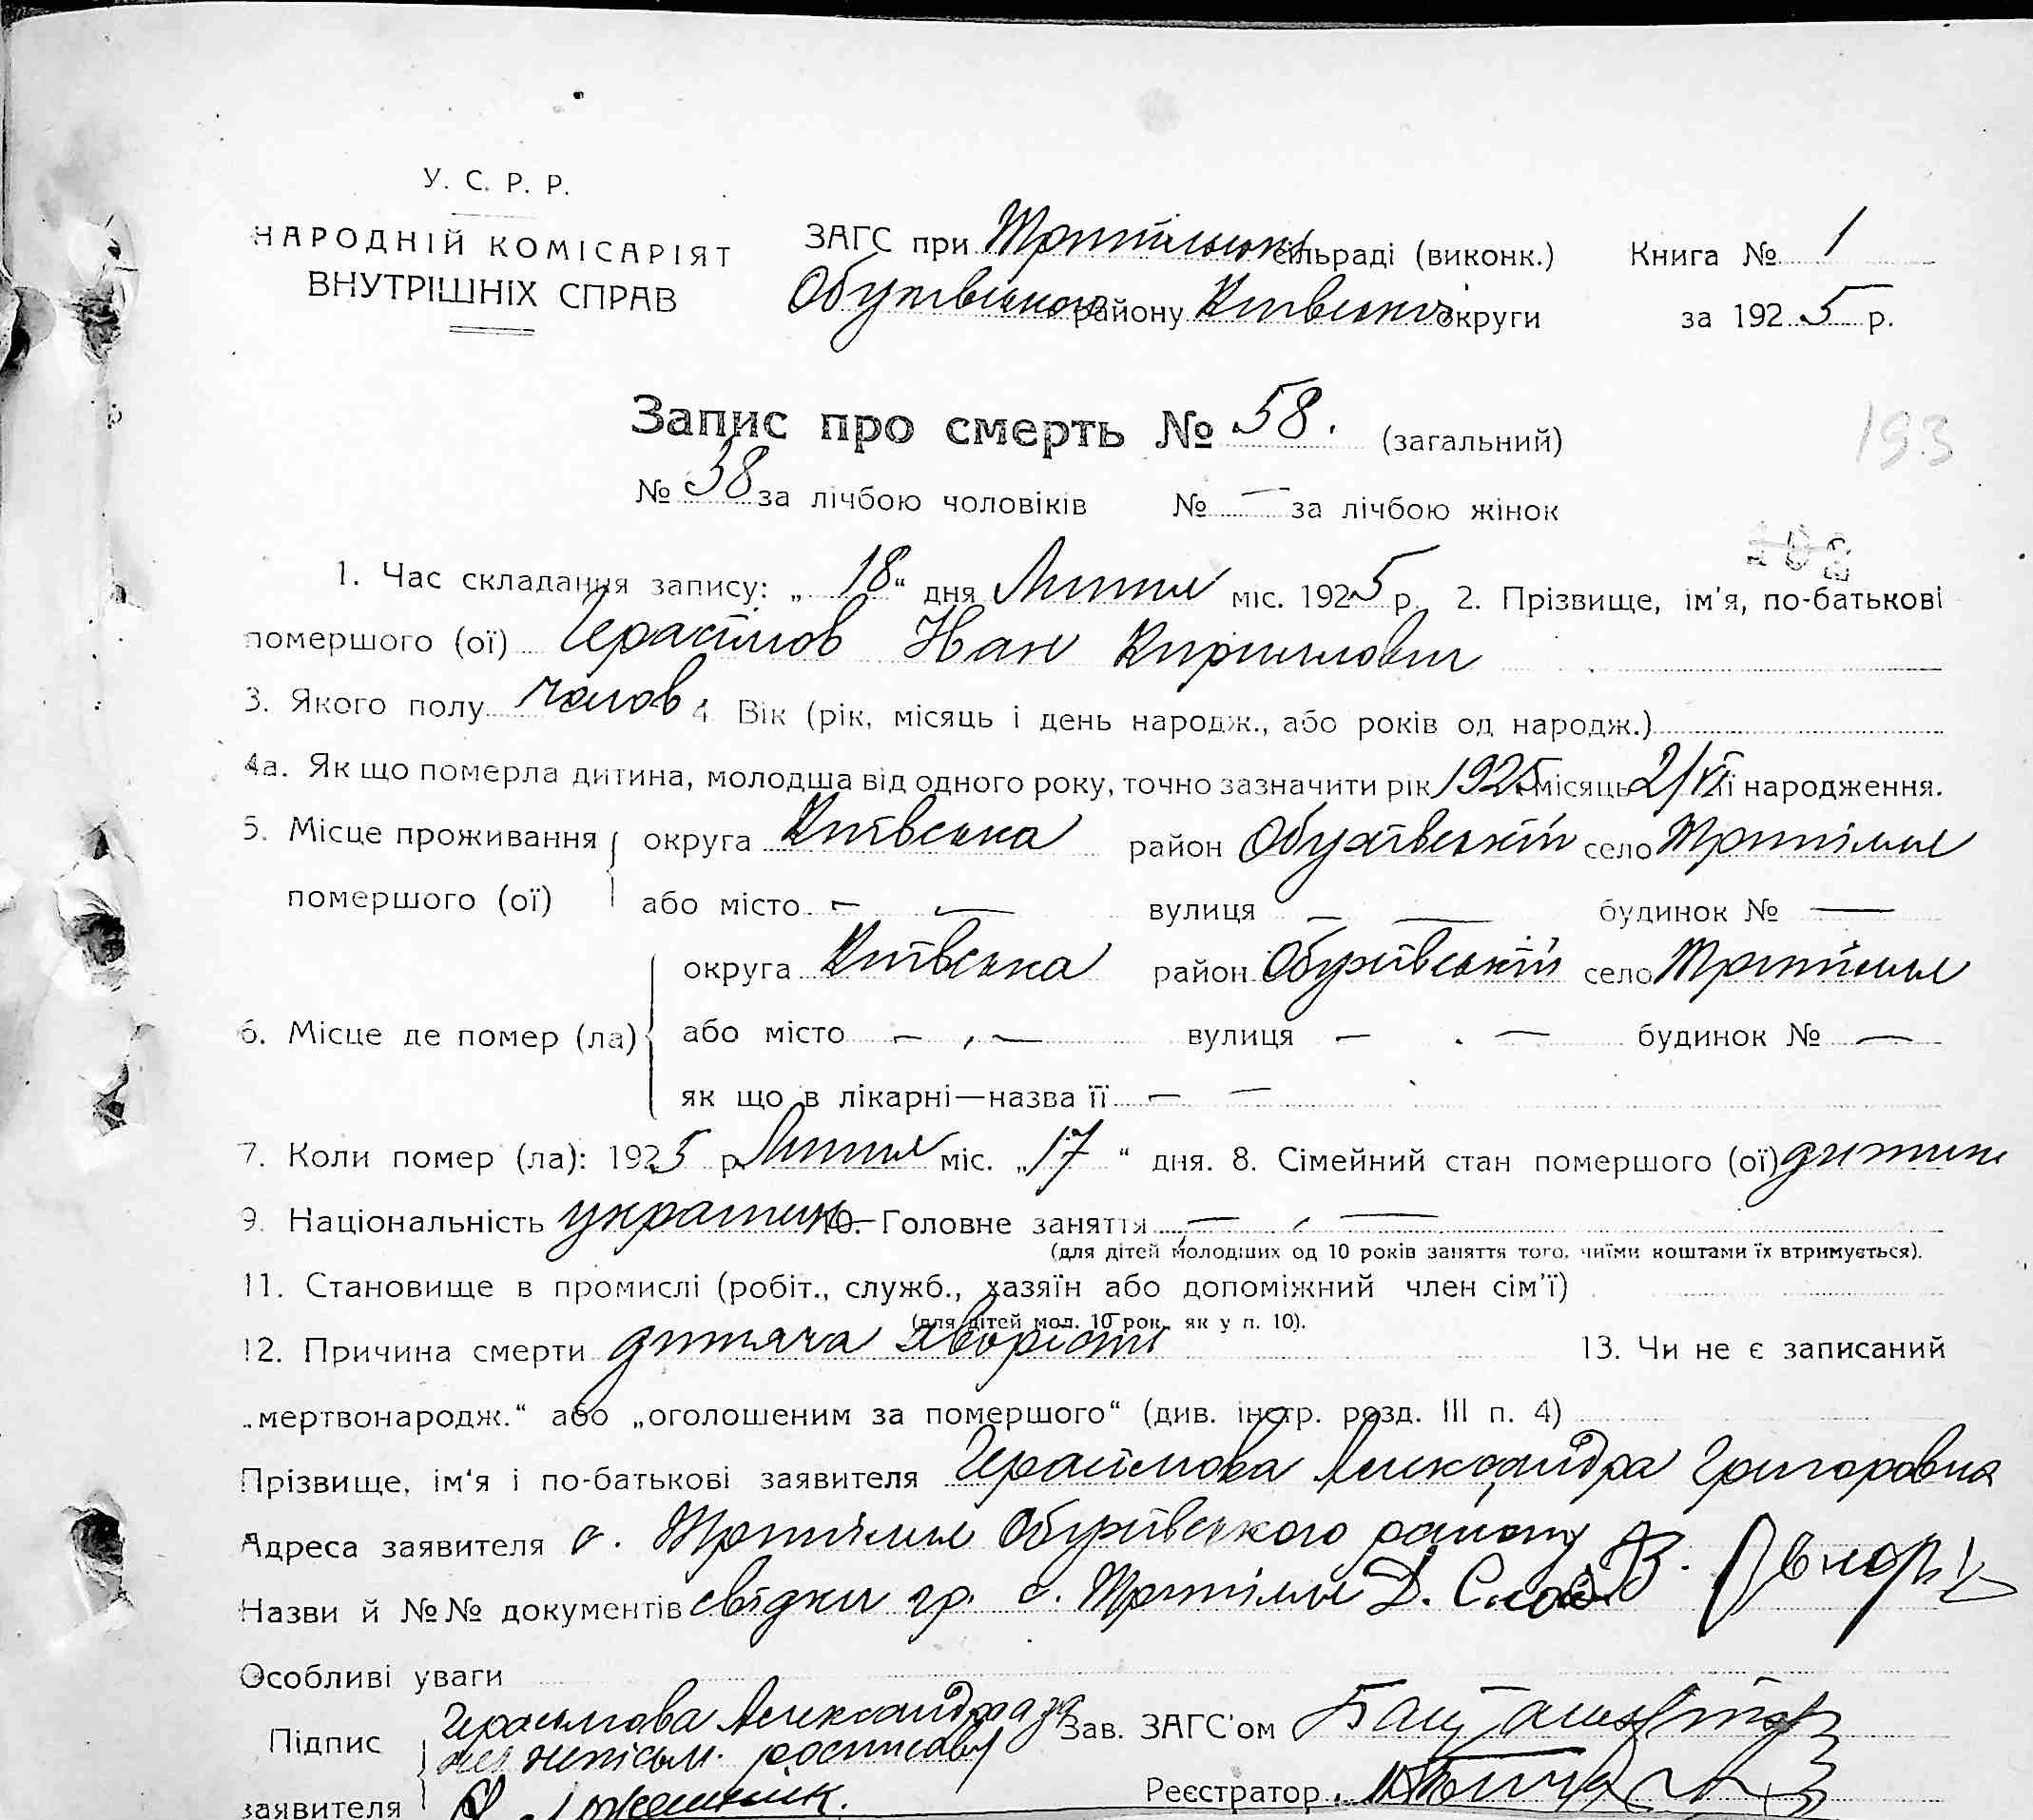 У. С. Р. Р.
НАРОДНІЙ КОМІСАРІЯТ
ВНУТРІШНІХ СПРАВ
ЗАГС при Трипільськ сільраді (виконк.)
Обухівського району Київської округи
Книга № 1
за 1925 р.
Запис про смерть № 58. (загальний)
193
№ 38 за лічбою чоловіків № — за лічбою жінок
1. Час складання запису: „18“ дня Липня міс. 1925 р. 2. Прізвище, ім'я, по-батькові
помершого (ої) Герасімов Иван Кирилович
3. Якого полу чолов 4. Вік (рік, місяць і день народж., або років од народж.)
4а. Як що померла дитина, молодша від одного року, точно зазначити рік 1925 місяць 2/VI її народження.
5. Місце проживання помершого (ої) округа Київська район Обухівський село Трипілля
або місто — — вулиця — — будинок № —
6. Місце де помер (ла) округа Київська район Обухівський село Трипілля
або місто — — вулиця — — будинок № —
як що в лікарні—назва її — —
7. Коли помер (ла): 1925 р. Липня міс. „17“ дня. 8. Сімейний стан помершого (ої) дитина
9. Національність українець 10. Головне заняття — —
(для дітей молодших од 10 років заняття того, чиїми коштами їх втримується).
11. Становище в промислі (робіт., служб., хазяїн або допоміжний член сім'ї)
(для дітей мол. 10 рок. як у п. 10).
12. Причина смерти дитяча хворість 13. Чи не є записаний
„мертвонародж.“ або „оголошеним за помершого“ (див. інстр. розд. III п. 4)
Прізвище, ім'я і по-батькові заявителя Герасімова Александра Григоровна
Адреса заявителя с. Трипілля Обухівського району
Назви й №№ документів свідки гр. с. Трипілля Д.
Особливі уваги
Підпис заявителя Герасімова Александра а за
неї неписьм. росписавсь
Зав. ЗАГС'ом
Реєстратор